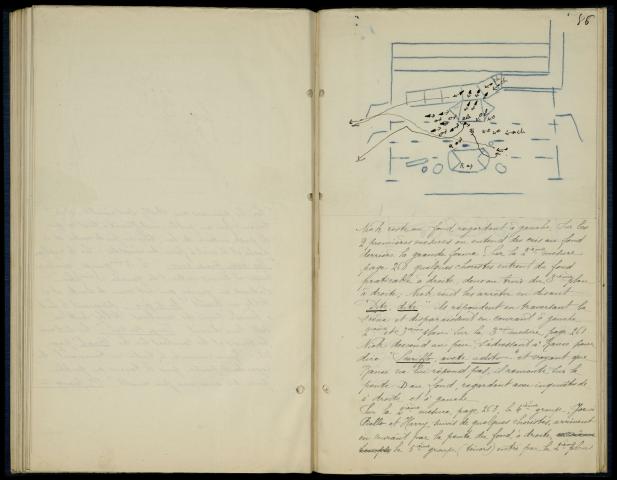 86
Nick
Nick reste au fond regardant à gauche. Sur les
2 premières mesures on entend des cris au fond
derrière la grande forme. Sur la 2ème mesure
page 260 quelques choristes entrent du fond
praticable à droite, deux ou trois du 3ème plan
à droite, Nick veut les arrêter en disant
"Dite dite" Ils répondent en traversant la
scène et disparaissent en courant à gauche
2ème et 3ème plan. Sur la 3ème mesure, page 261
Nick descend un peu, s'adressant à Rance pour
dire "Sceriffo, avete udito" et voyant que
Rance ne lui répond pas, il remonte sur la
pente. D au fond, regardant avec inquiétude
à droite et à gauche
Sur la mesure, page 263, le groupe. Joe
et Harry, suivis de quelques choristes, arrivent
en courant par la pente du fond, à droite,
le 5ème groupe (ténors) entre par le 2ème plan